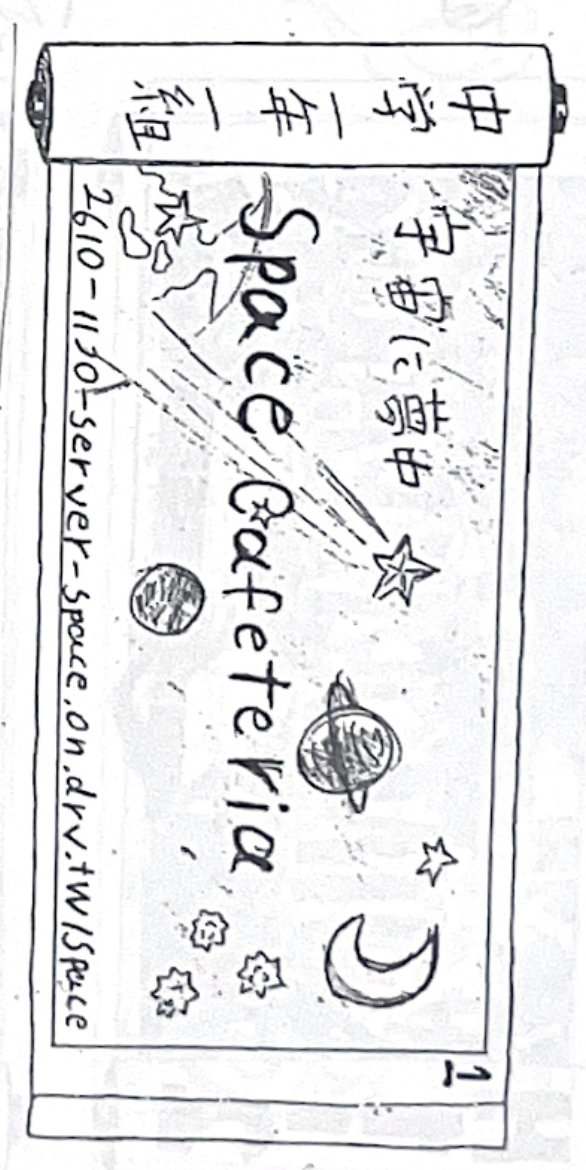 中学一年一組
宇宙に夢中
Space Cafeteria
2610-1130-server-space.on.drv.tw/space
1